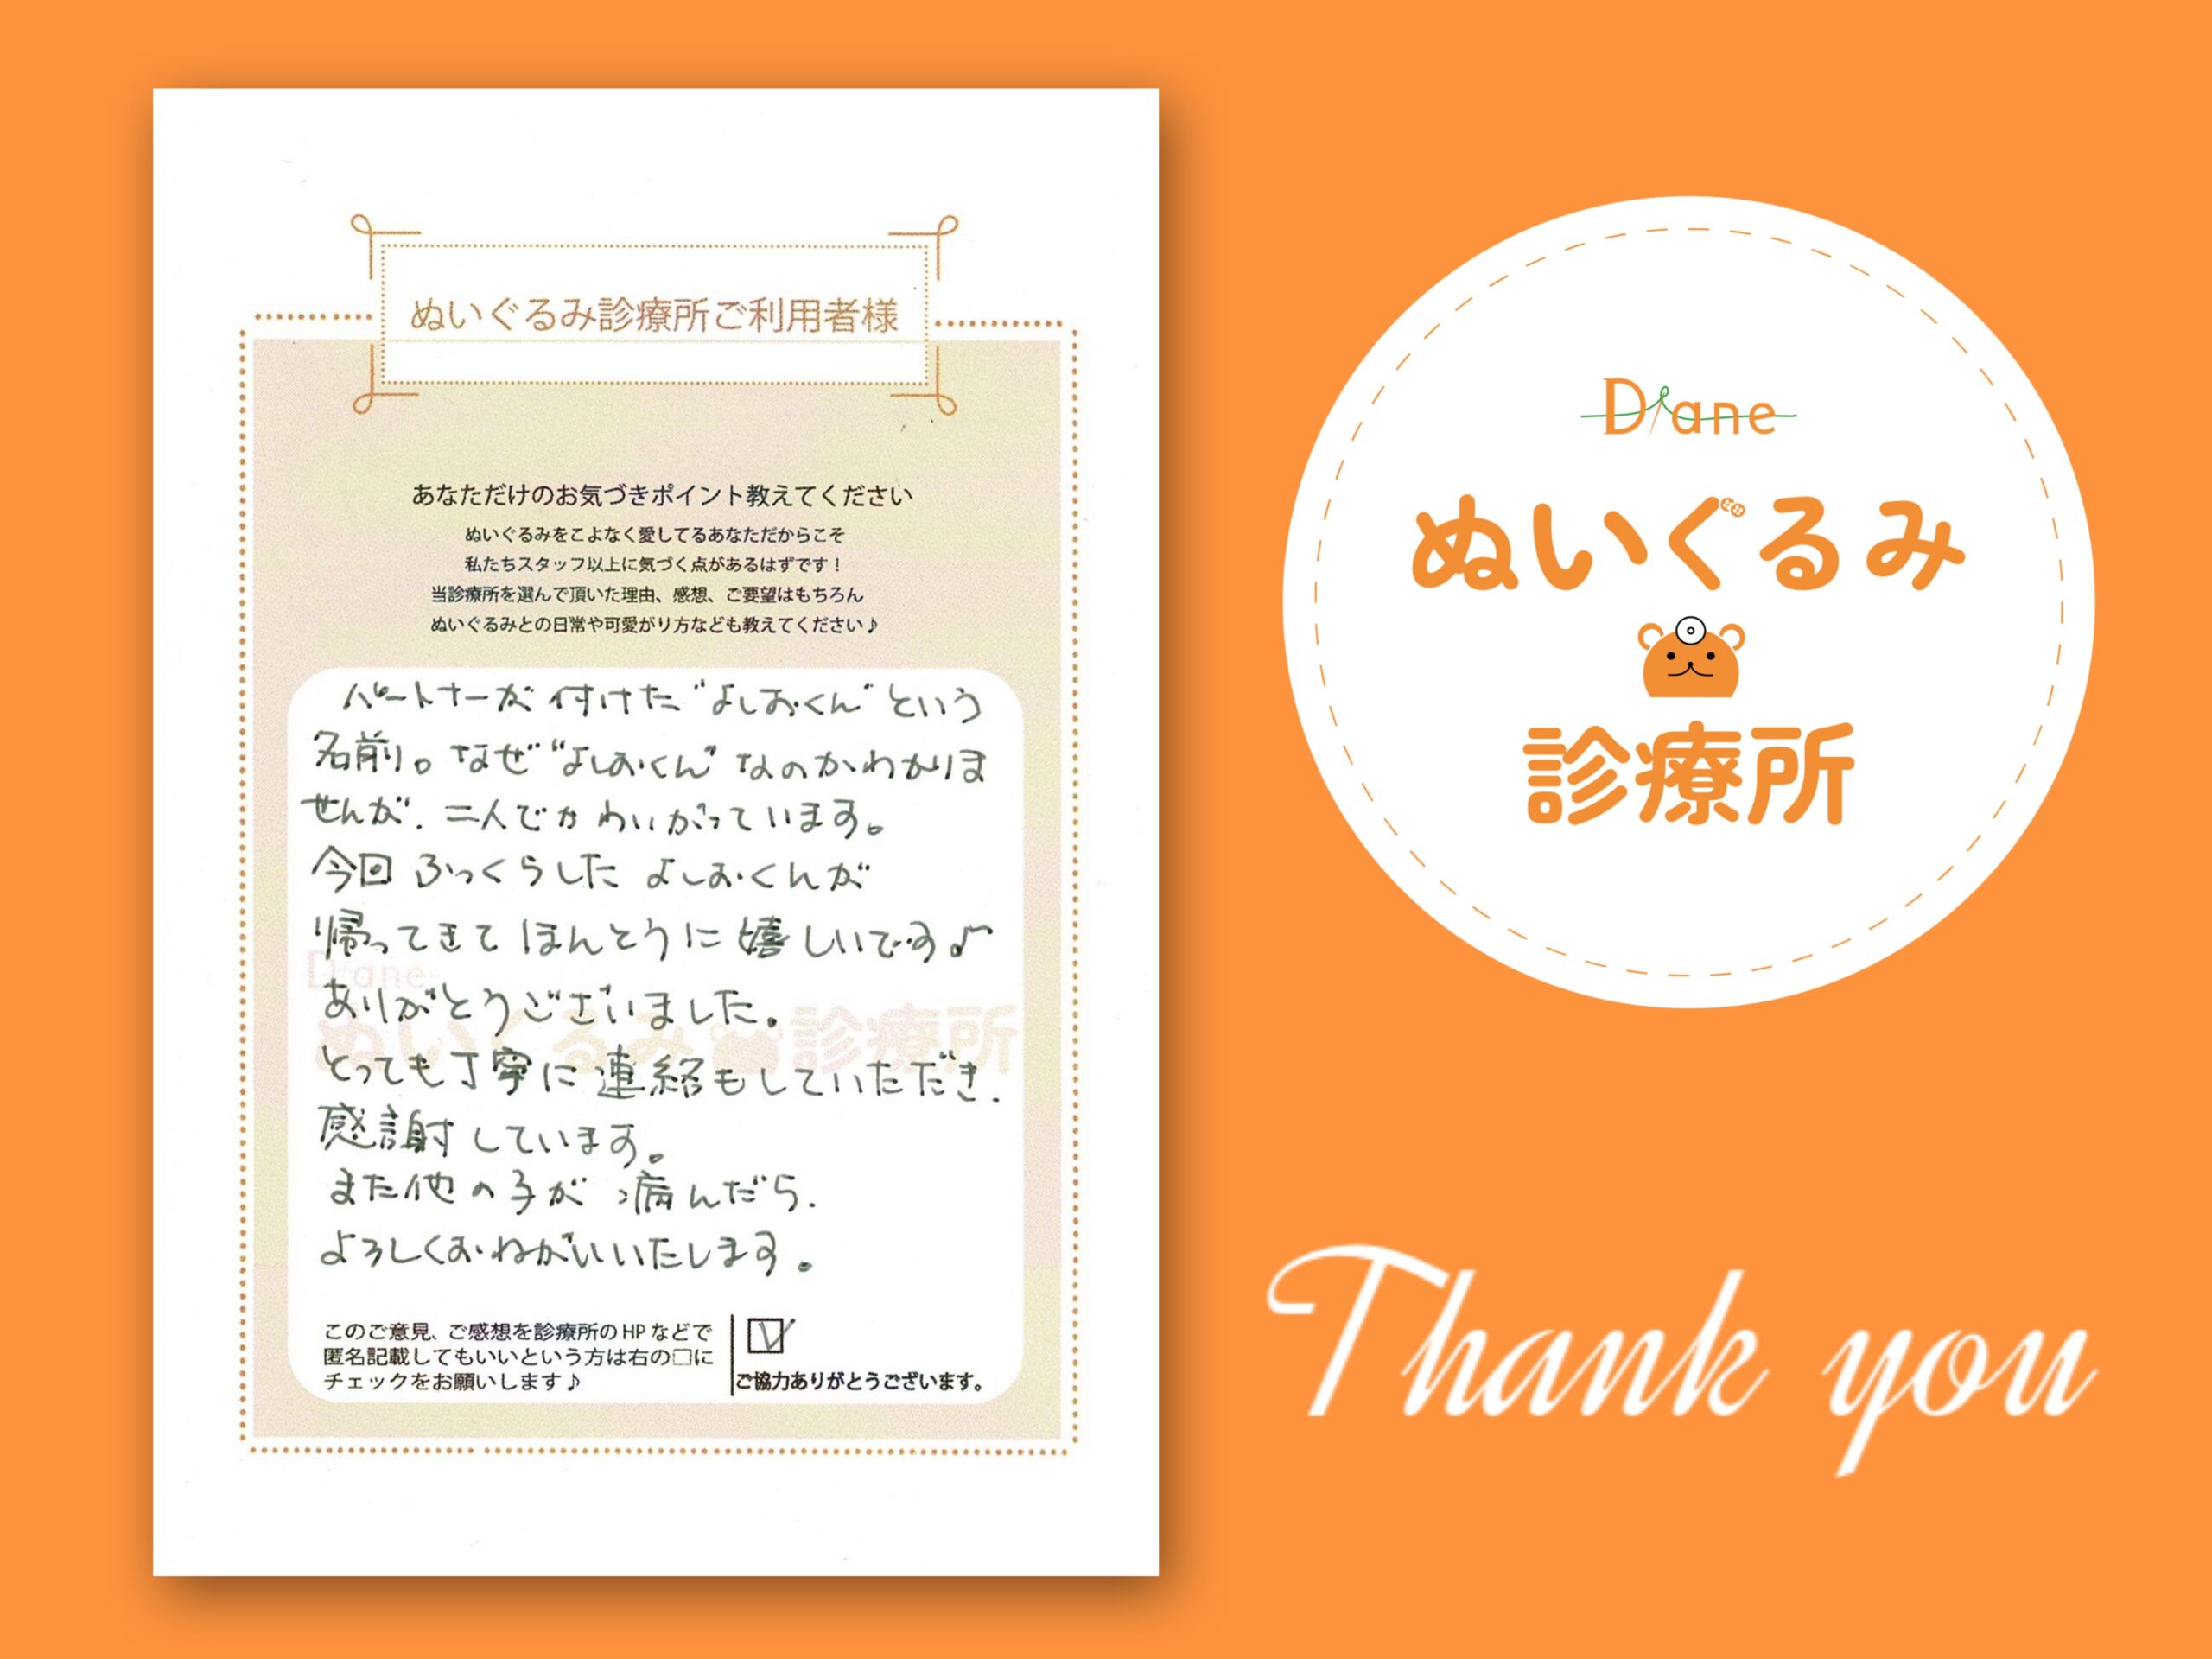 ぬいぐるみ診療所ご利用者様
あなただけのお気づきポイント教えてください
ぬいぐるみをこよなく愛してるあなただからこそ
私たちスタッフ以上に気づく点があるはずです！
当診療所を選んで頂いた理由、感想、ご要望はもちろん
ぬいぐるみとの日常や可愛がり方なども教えてください♪
パートナーが付けた“よしおくん”という
名前。なぜ“よしおくん”なのかわかりま
せんが、二人でかわいがっています。
今回ふっくらしたよしおくんが
帰ってきてほんとうに嬉しいです♪
ありがとうございました。
とっても丁寧に連絡もしていただき、
感謝しています。
また他の子が病んだら、
よろしくおねがいいたします。
Diane
ぬいぐるみ診療所
このご意見、ご感想を診療所のHPなどで
匿名記載してもいいという方は右の□に
チェックをお願いします♪
ご協力ありがとうございます。
Diane
ぬいぐるみ
診療所
Thank you